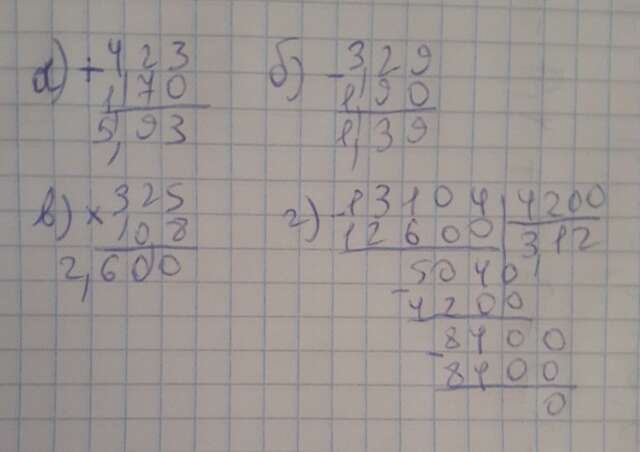 а) + 4 2 3
1, 7 0
5, 9 3
б) - 3, 2 9
1, 9 0
1, 3 9
в) × 3 2 5
1 0 8
2, 6 0 0
г) - 1 3 1 0 4 | 4 2 0 0
1 2 6 0 0 | 3, 1 2
- 5 0 4 0
4 2 0 0
- 8 4 0 0
8 4 0 0
0